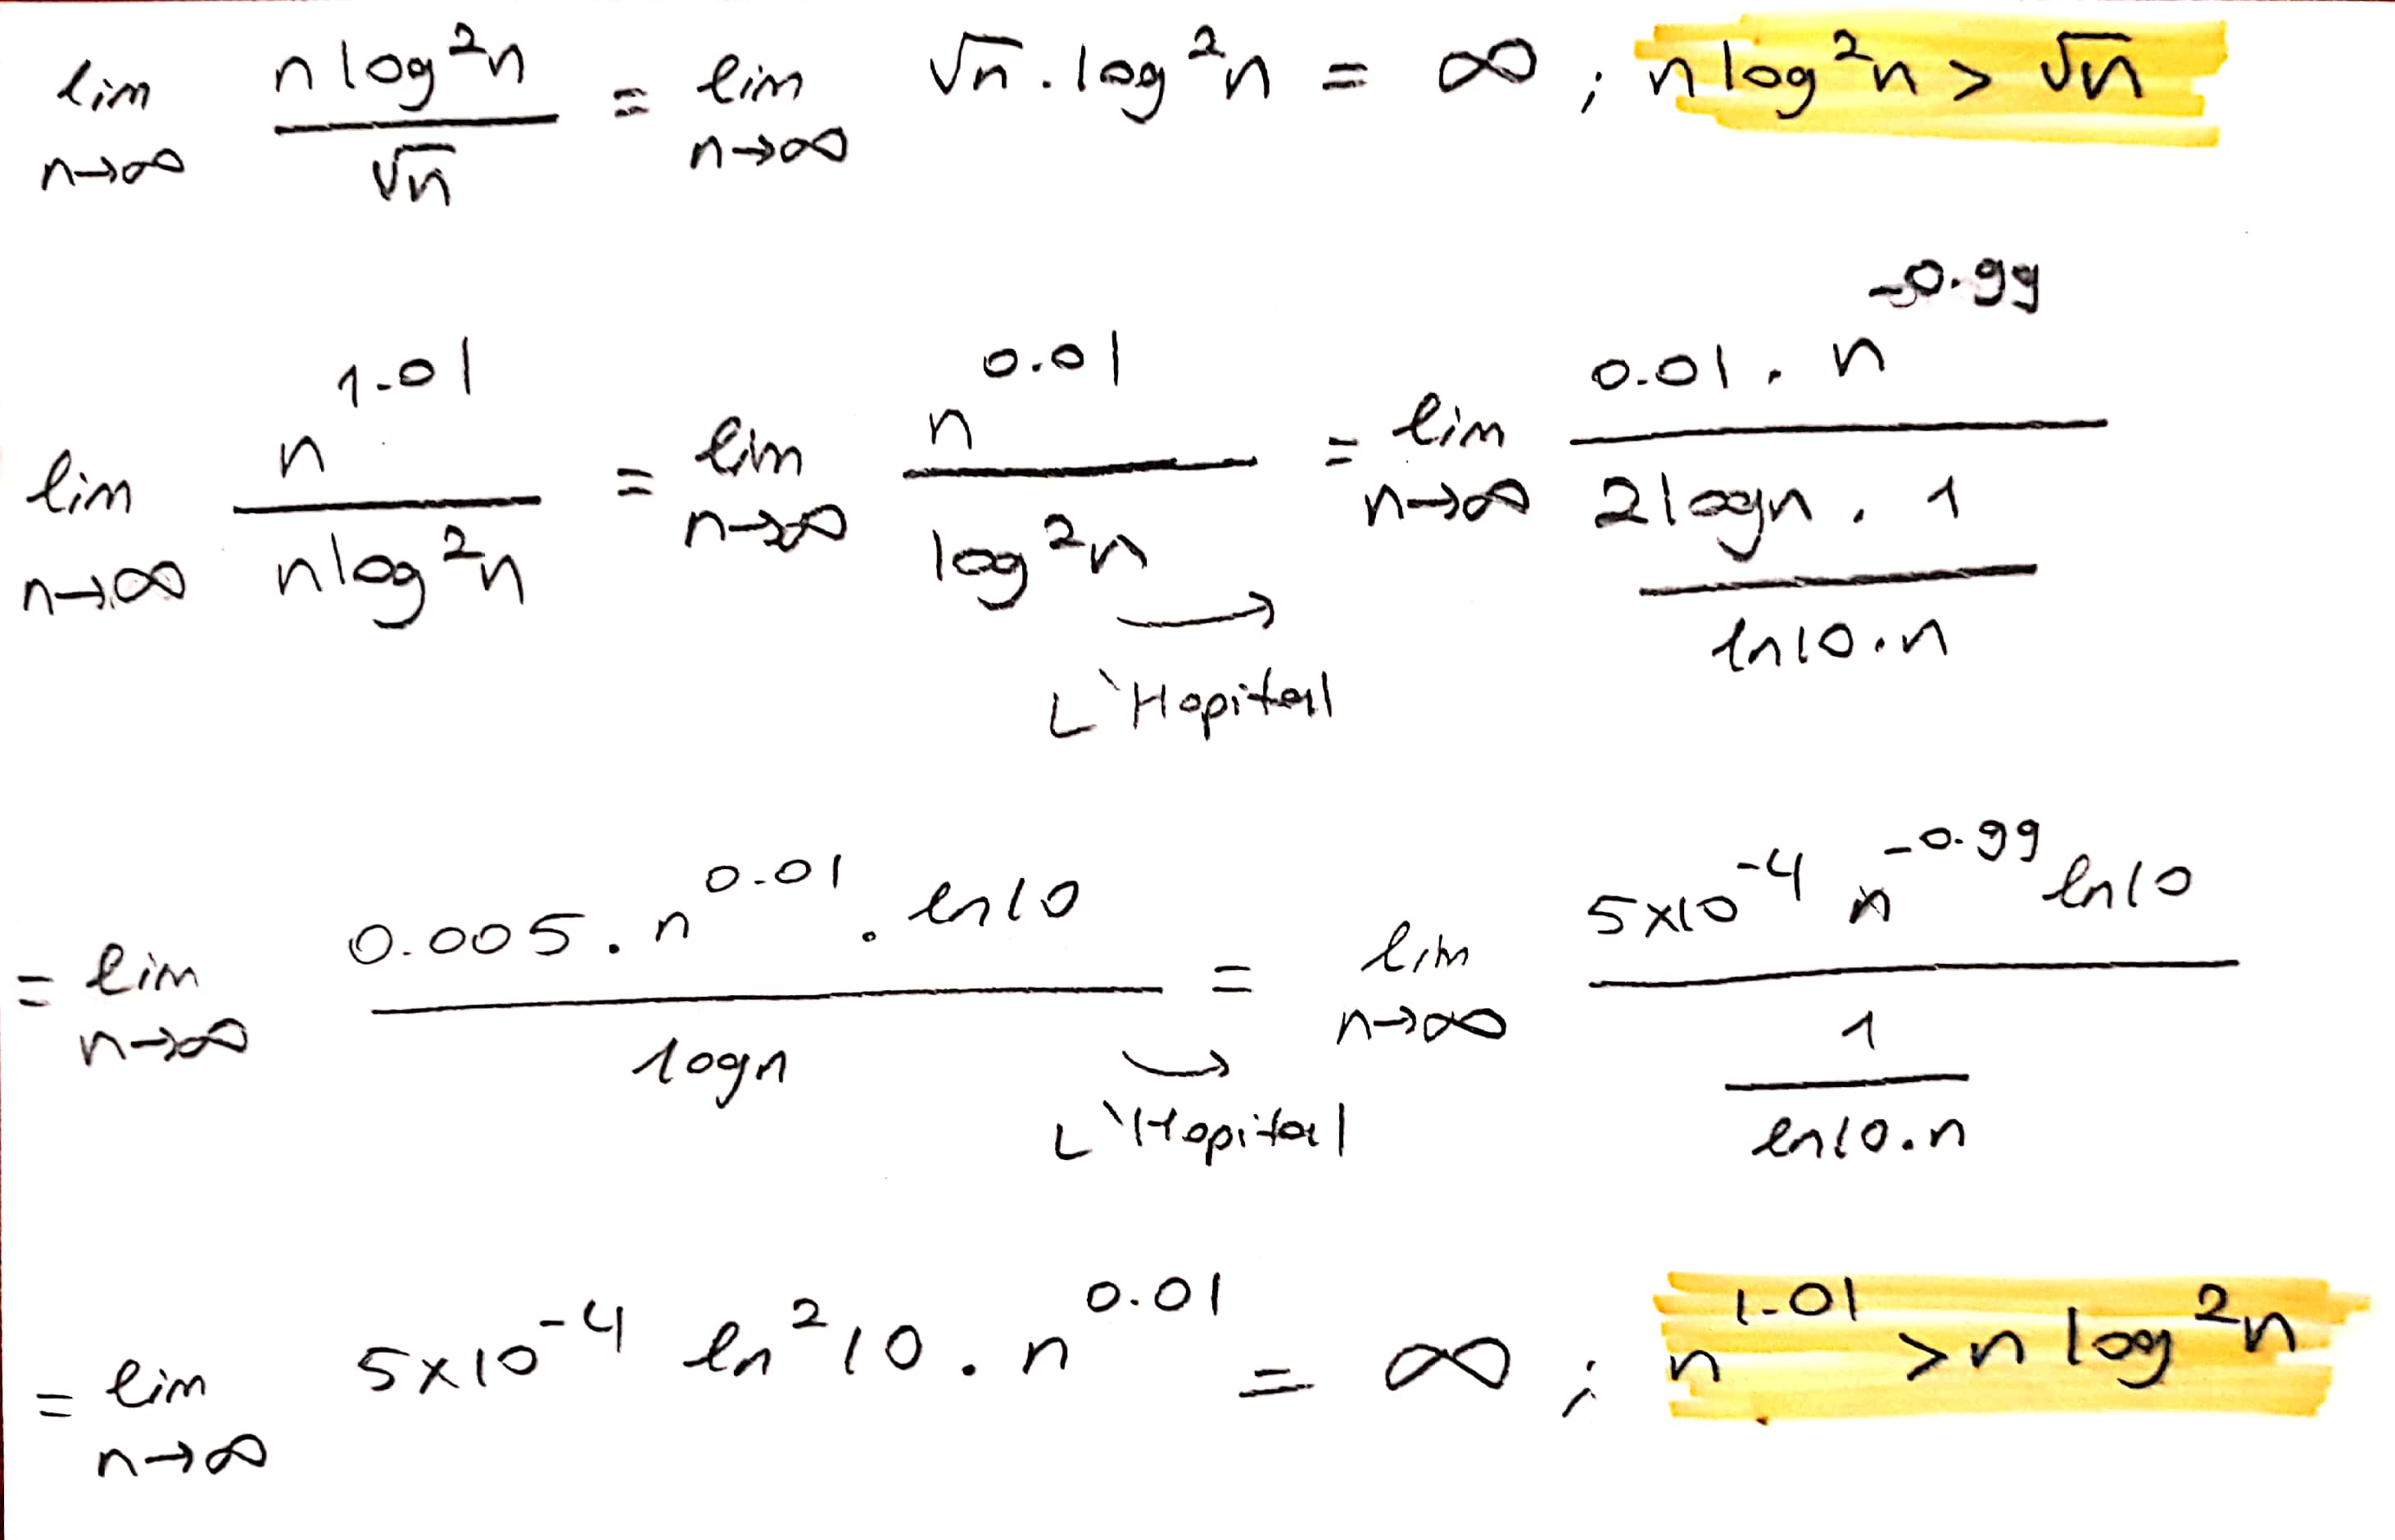 lim n→∞ n log²n / √n = lim n→∞ √n . log²n = ∞ ; n log²n > √n
lim n→∞ n^1.01 / n log²n = lim n→∞ n^0.01 / log²n = lim n→∞ 0.01 . n^-0.99 / (2 log n . 1 / ln10.n)
L'Hopital
= lim n→∞ 0.005 . n^0.01 . ln10 / log n = lim n→∞ 5x10^-4 n^-0.99 ln10 / (1 / ln10.n)
L'Hopital
= lim n→∞ 5x10^-4 ln²10 . n^0.01 = ∞ ; n^1.01 > n log²n